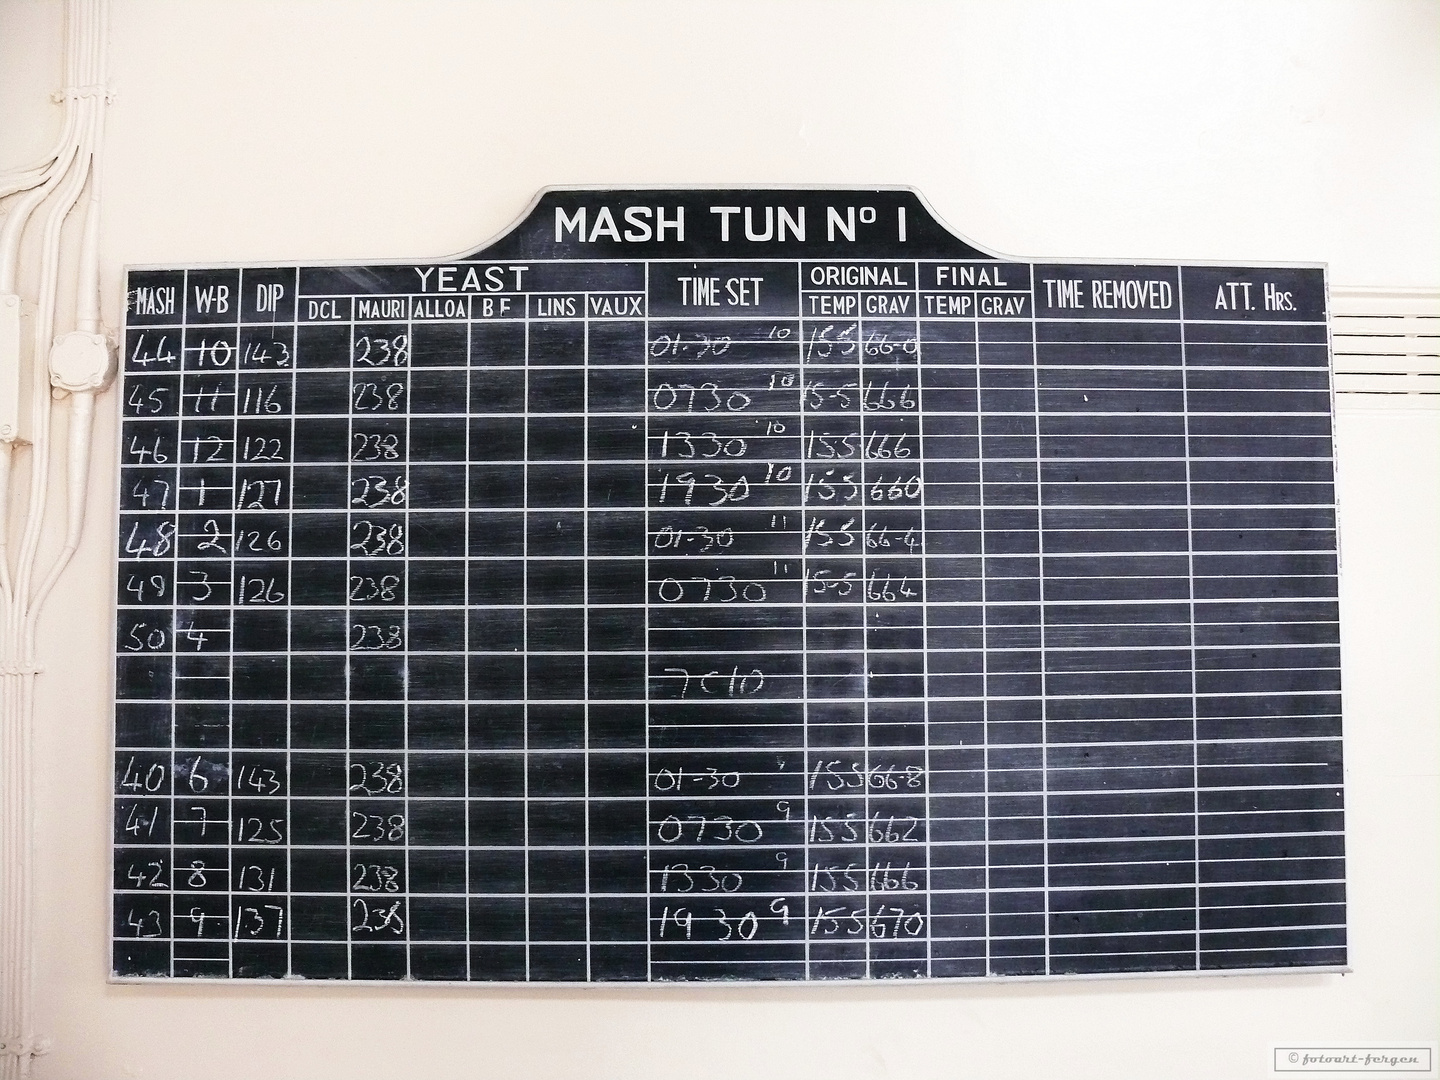 MASH TUN Nº 1
MASH W-B DIP YEAST TIME SET ORIGINAL FINAL TIME REMOVED ATT. HRS.
DCL MAURI ALLOA B F LINS VAUX TEMP GRAV TEMP GRAV
44 10 143 238 01-30 10 155 66-0
45 11 116 238 0730 10 15-5 666
46 12 122 238 1330 10 155 666
47 1 127 238 1930 10 155 660
48 2 126 238 01-30 11 155 66-4
49 3 126 238 0730 11 15-5 664
50 4 238
40 6 143 238 01-30 155 66-8
41 7 125 238 0730 9 155 662
42 8 131 238 1330 9 155 666
43 9 137 238 1930 9 155 670
© fotoart-fergen